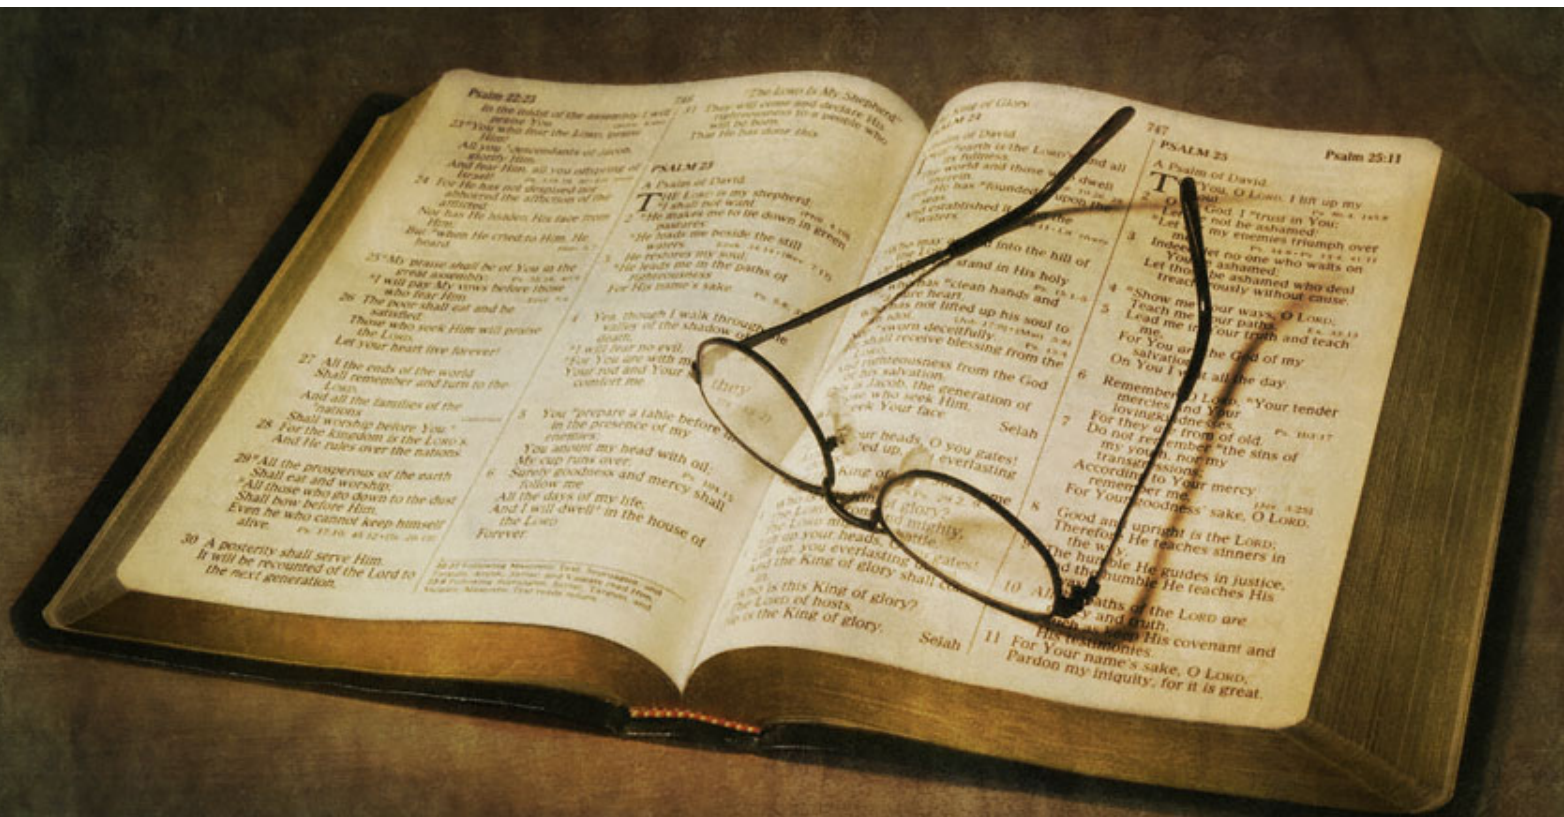 Psalm 22:23
In the midst of the assembly I will
praise You.
23 "You who fear the LORD, praise
Him!
All you descendants of Jacob,
glorify Him,
And fear Him, all you offspring of
Israel!
24 For He has not despised nor
abhorred the affliction of the
afflicted;
Nor has He hidden His face from
Him;
But "when He cried to Him, He
heard.
25 "My praise shall be of You in the
great assembly;
"I will pay My vows before those
who fear Him.
26 The poor shall eat and be
satisfied;
Those who seek Him will praise
the LORD.
Let your heart live forever!
27 All the ends of the world
Shall remember and turn to the
LORD,
And all the families of the
"nations
Shall worship before You."
28 For the kingdom is the LORD's,
And He rules over the nations.
29 "All the prosperous of the earth
Shall eat and worship;
"All those who go down to the dust
Shall bow before Him,
Even he who cannot keep himself
alive.
30 A posterity shall serve Him.
It will be recounted of the Lord to
the next generation,
746
"The LORD Is My Shepherd"
31 They will come and declare His
righteousness to a people who
will be born,
That He has done this.
PSALM 23
A Psalm of David.
THE LORD is my shepherd;
"I shall not want.
2 "He makes me to lie down in green
pastures;
"He leads me beside the still
waters.
3 He restores my soul;
"He leads me in the paths of
righteousness
For His name's sake.
4 Yea, though I walk through the
valley of the shadow of
death,
"I will fear no evil;
"For You are with me;
Your rod and Your
comfort me.
they
5 You "prepare a table before
in the presence of my
enemies;
You anoint my head with oil;
My cup runs over.
6 Surely goodness and mercy shall
follow me
All the days of my life;
And I will dwell in the house of
the LORD
Forever.
King of Glory
24
of David.
earth is the LORD's, and all
its fullness,
world and those dwell
therein.
He has "founded upon the
seas,
And established it the
waters.
may into the hill of
the
stand in His holy
has "clean hands and
pure heart,
has not lifted up his soul to
idol,
"sworn deceitfully.
shall receive blessing from the
LORD,
And righteousness from the God
of his salvation.
is Jacob, the generation of
who seek Him,
seek Your face.
Selah
your heads, O you gates!
lifted up, everlasting
King of
glory?
mighty,
battle.
up your heads,
up, you everlasting gates!
And the King of glory shall
in.
Who is this King of glory?
The LORD of hosts,
He is the King of glory.
Selah
747
Psalm 25:11
PSALM 25
A Psalm of David.
To You, O LORD, I lift up my
soul.
2 O God, I "trust in You;
"Let not be ashamed;
"Let my enemies triumph over
me.
3 Indeed, let no one who waits on
You be ashamed;
Let those be ashamed who deal
treacherously without cause.
4 "Show me Your ways, O LORD;
Teach me Your paths.
5 Lead me in Your truth and teach
me,
For You are the God of my
salvation;
On You I wait all the day.
6 Remember, O LORD, "Your tender
mercies and Your
lovingkindnesses,
For they are from of old.
7 Do not remember "the sins of
my youth, nor my
transgressions;
According to Your mercy
remember me,
For Your goodness' sake, O LORD.
8 Good and upright is the LORD;
Therefore He teaches sinners in
the way.
9 The humble He guides in justice,
And the humble He teaches His
way.
10 All paths of the LORD are
mercy and truth,
To such as keep His covenant and
His testimonies.
11 For Your name's sake, O LORD,
Pardon my iniquity, for it is great.